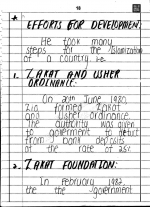 18
EFFORTS FOR DEVELOPMENT:
He took many
steps for the Islamization
of a country i.e
1. ZAKAT AND USHER
ORDINANCE:
On 20th June 1980,
Zia formed Zakat
and Usher ordinance.
The authority was given
to government to detect
from bank deposits
at the rate of 2.5%.
2. ZAKAT FOUNDATION:
In February 1982
the the government